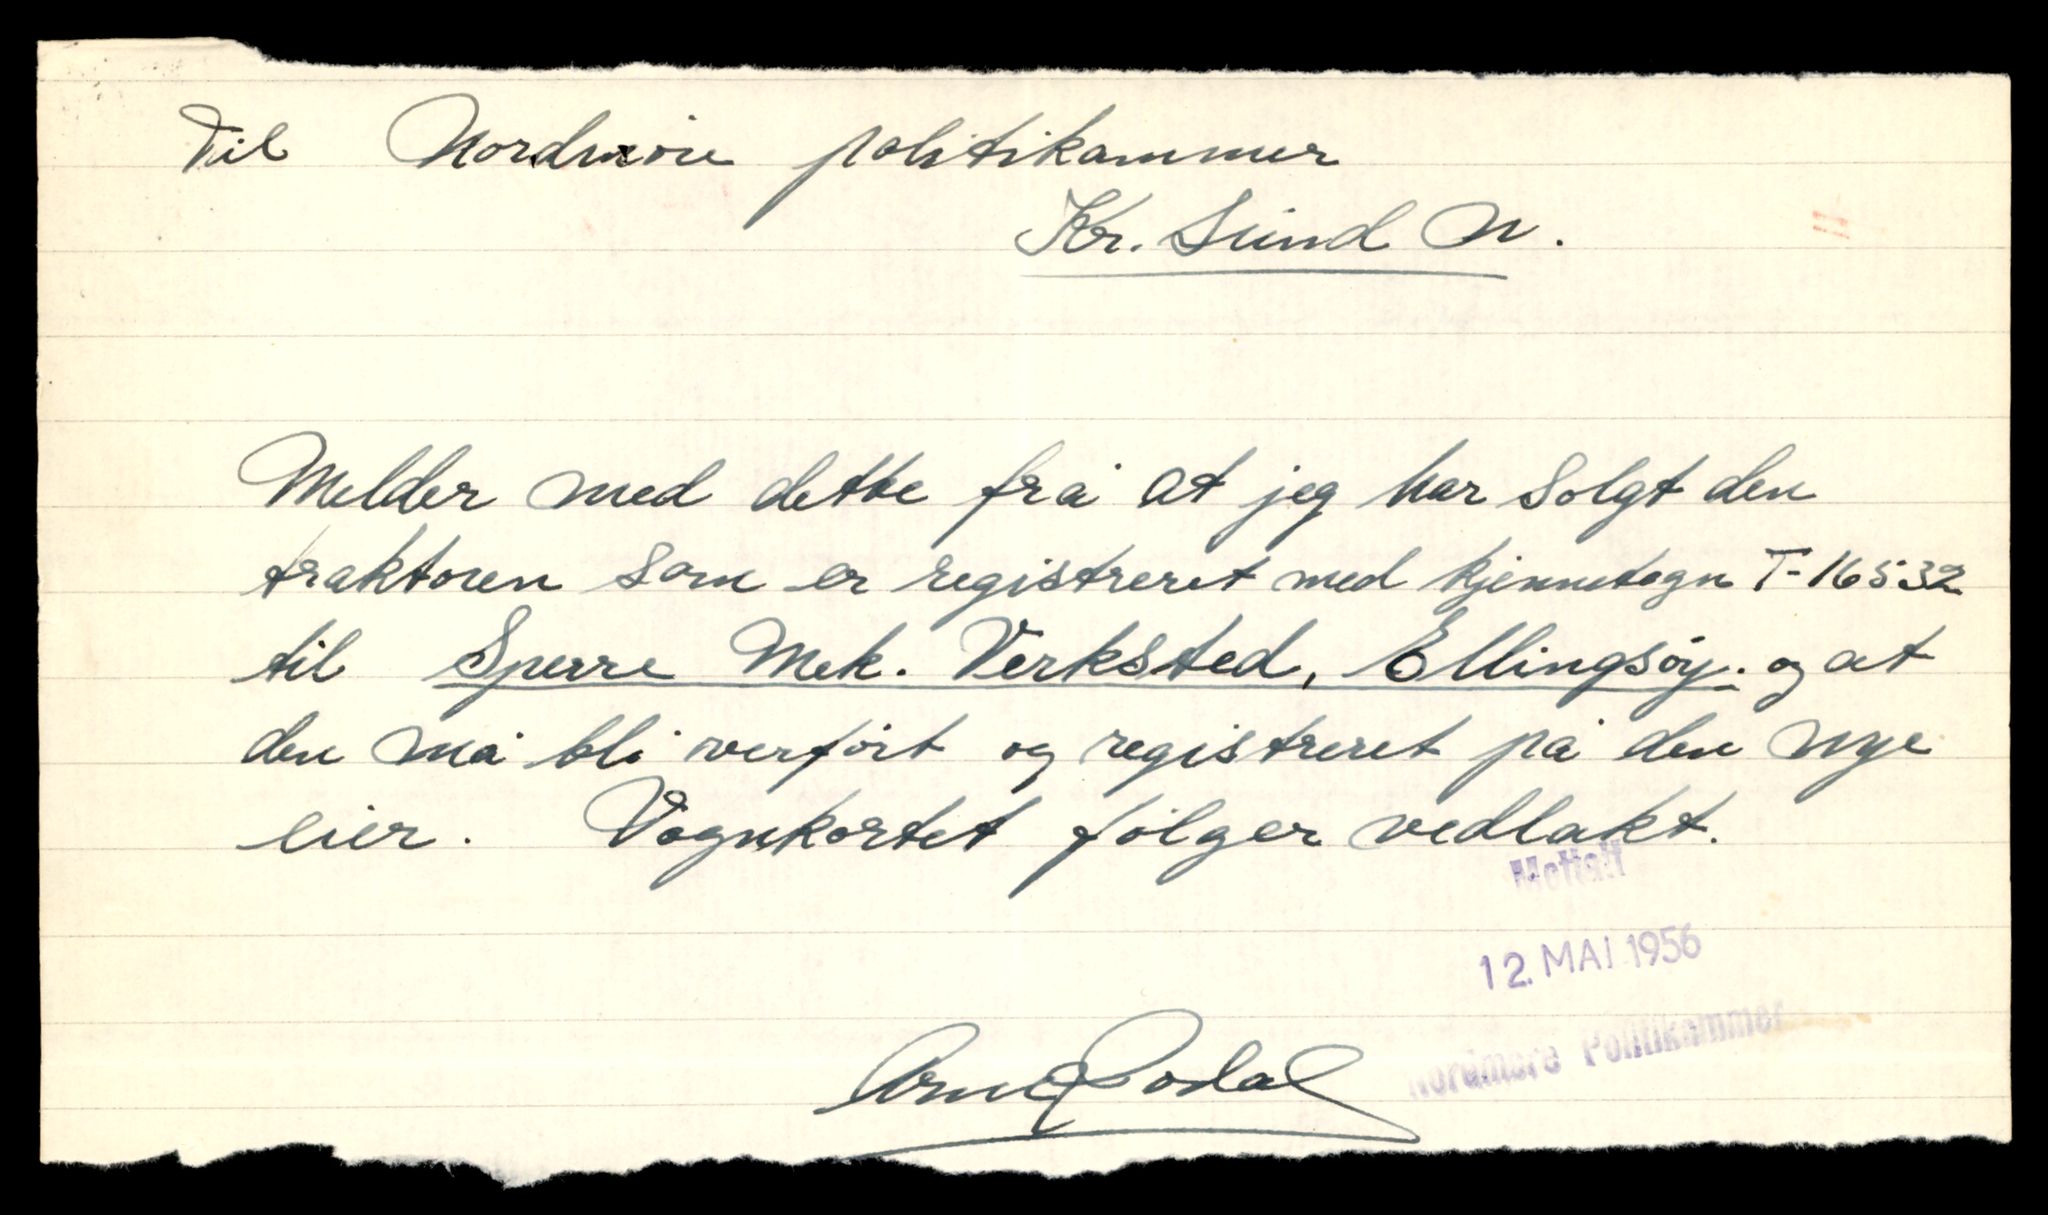 Til Nordmøre politikammer
Kr. Sund N.
Melder med dette frå at jeg har solgt den
traktoren som er registreret med kjennetegn T-16532
til Sperre Mek. Verksted, Ellingsøy. og at
den må bli overført og registreret på den nye
eier. Vognkortet følger vedlakt.
Mottatt
12. MAI 1956
Nordmøre Politikammer
Arne